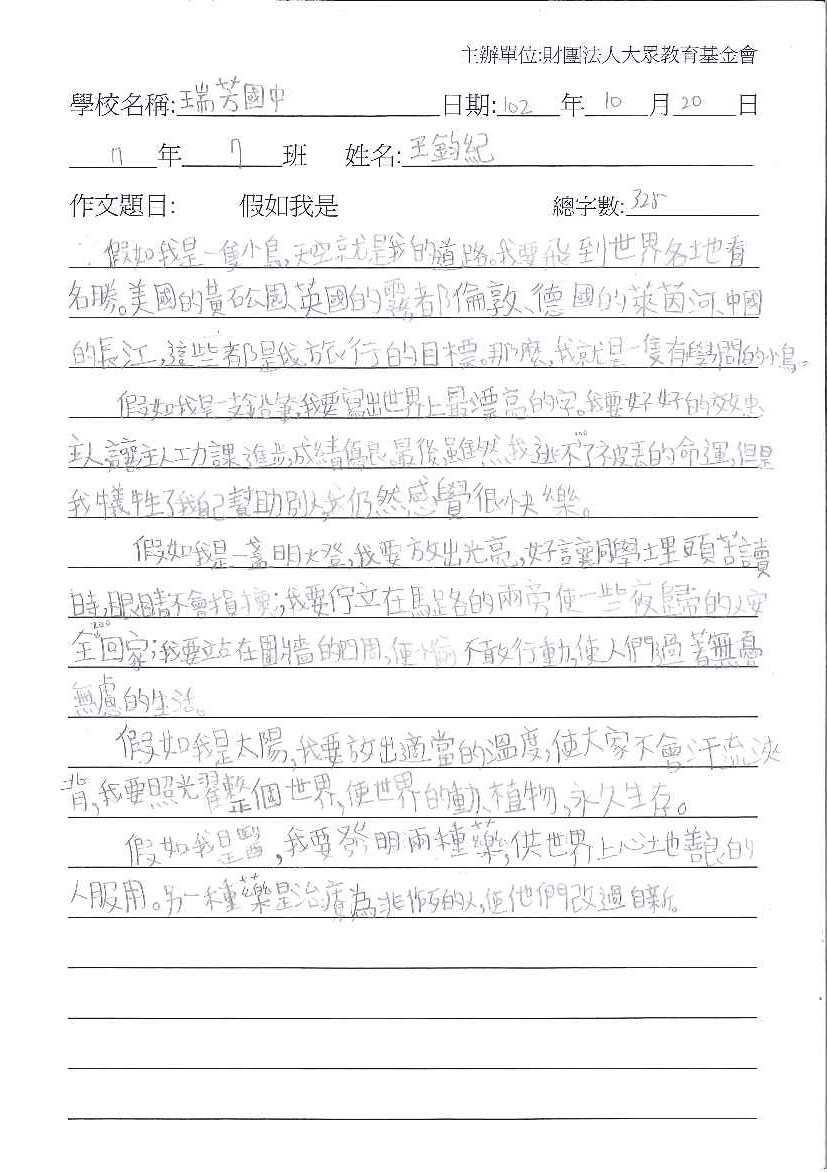 主辦單位:財團法人大眾教育基金會
學校名稱:瑞芳國中 日期:102 年 10 月 20 日
7 年 7 班 姓名:王鈞紀
作文題目: 假如我是 總字數:325
假如我是一隻小鳥,天空就是我的道路。我要飛到世界各地看
名勝。美國的黃石公園、英國的霧都倫敦、德國的萊茵河、中國
的長江,這些都是我旅行的目標。那麼,我就是一隻有學問的小鳥。
假如我是一支鉛筆,我要寫出世界上最漂亮的字。我要好好的效忠
主人,讓主人功課進步,成績優良。最後,雖然我逃不了被丟的命運,但是
我犧牲了我自己幫助別人,我仍然感覺很快樂。
假如我是一盞明燈,我要放出光亮,好讓同學埋頭苦讀
時,眼睛不會損壞;我要佇立在馬路的兩旁使一些夜歸的人安
全回家;我要立在圍牆的四周,使小偷不敢行動,使人們過著無憂
無慮的生活。
假如我是太陽,我要放出適當的溫度,使大家不會汗流浹
背,我要照光耀整個世界,使世界的動、植物,永久生存。
假如我是醫,我要發明兩種藥,供世界上心地善良的
人服用。另一種藥是治療為非作歹的人,使他們改過自新。